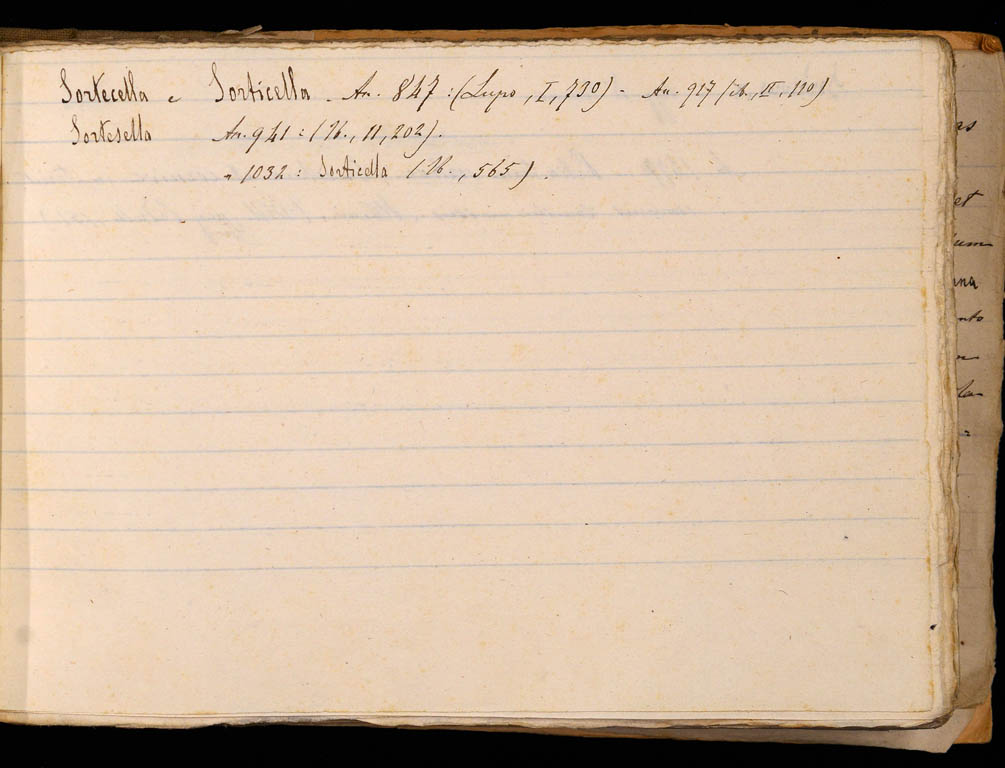 Sortecella e Sorticella - An. 847 : (Lupo, I, 730) - An. 917 (ib., II, 110)
Sortesella An. 941 : (Ib., 11, 202).
" 1032 : Sorticella (Ib., 565)
as
et
lum
ana
nto
la-